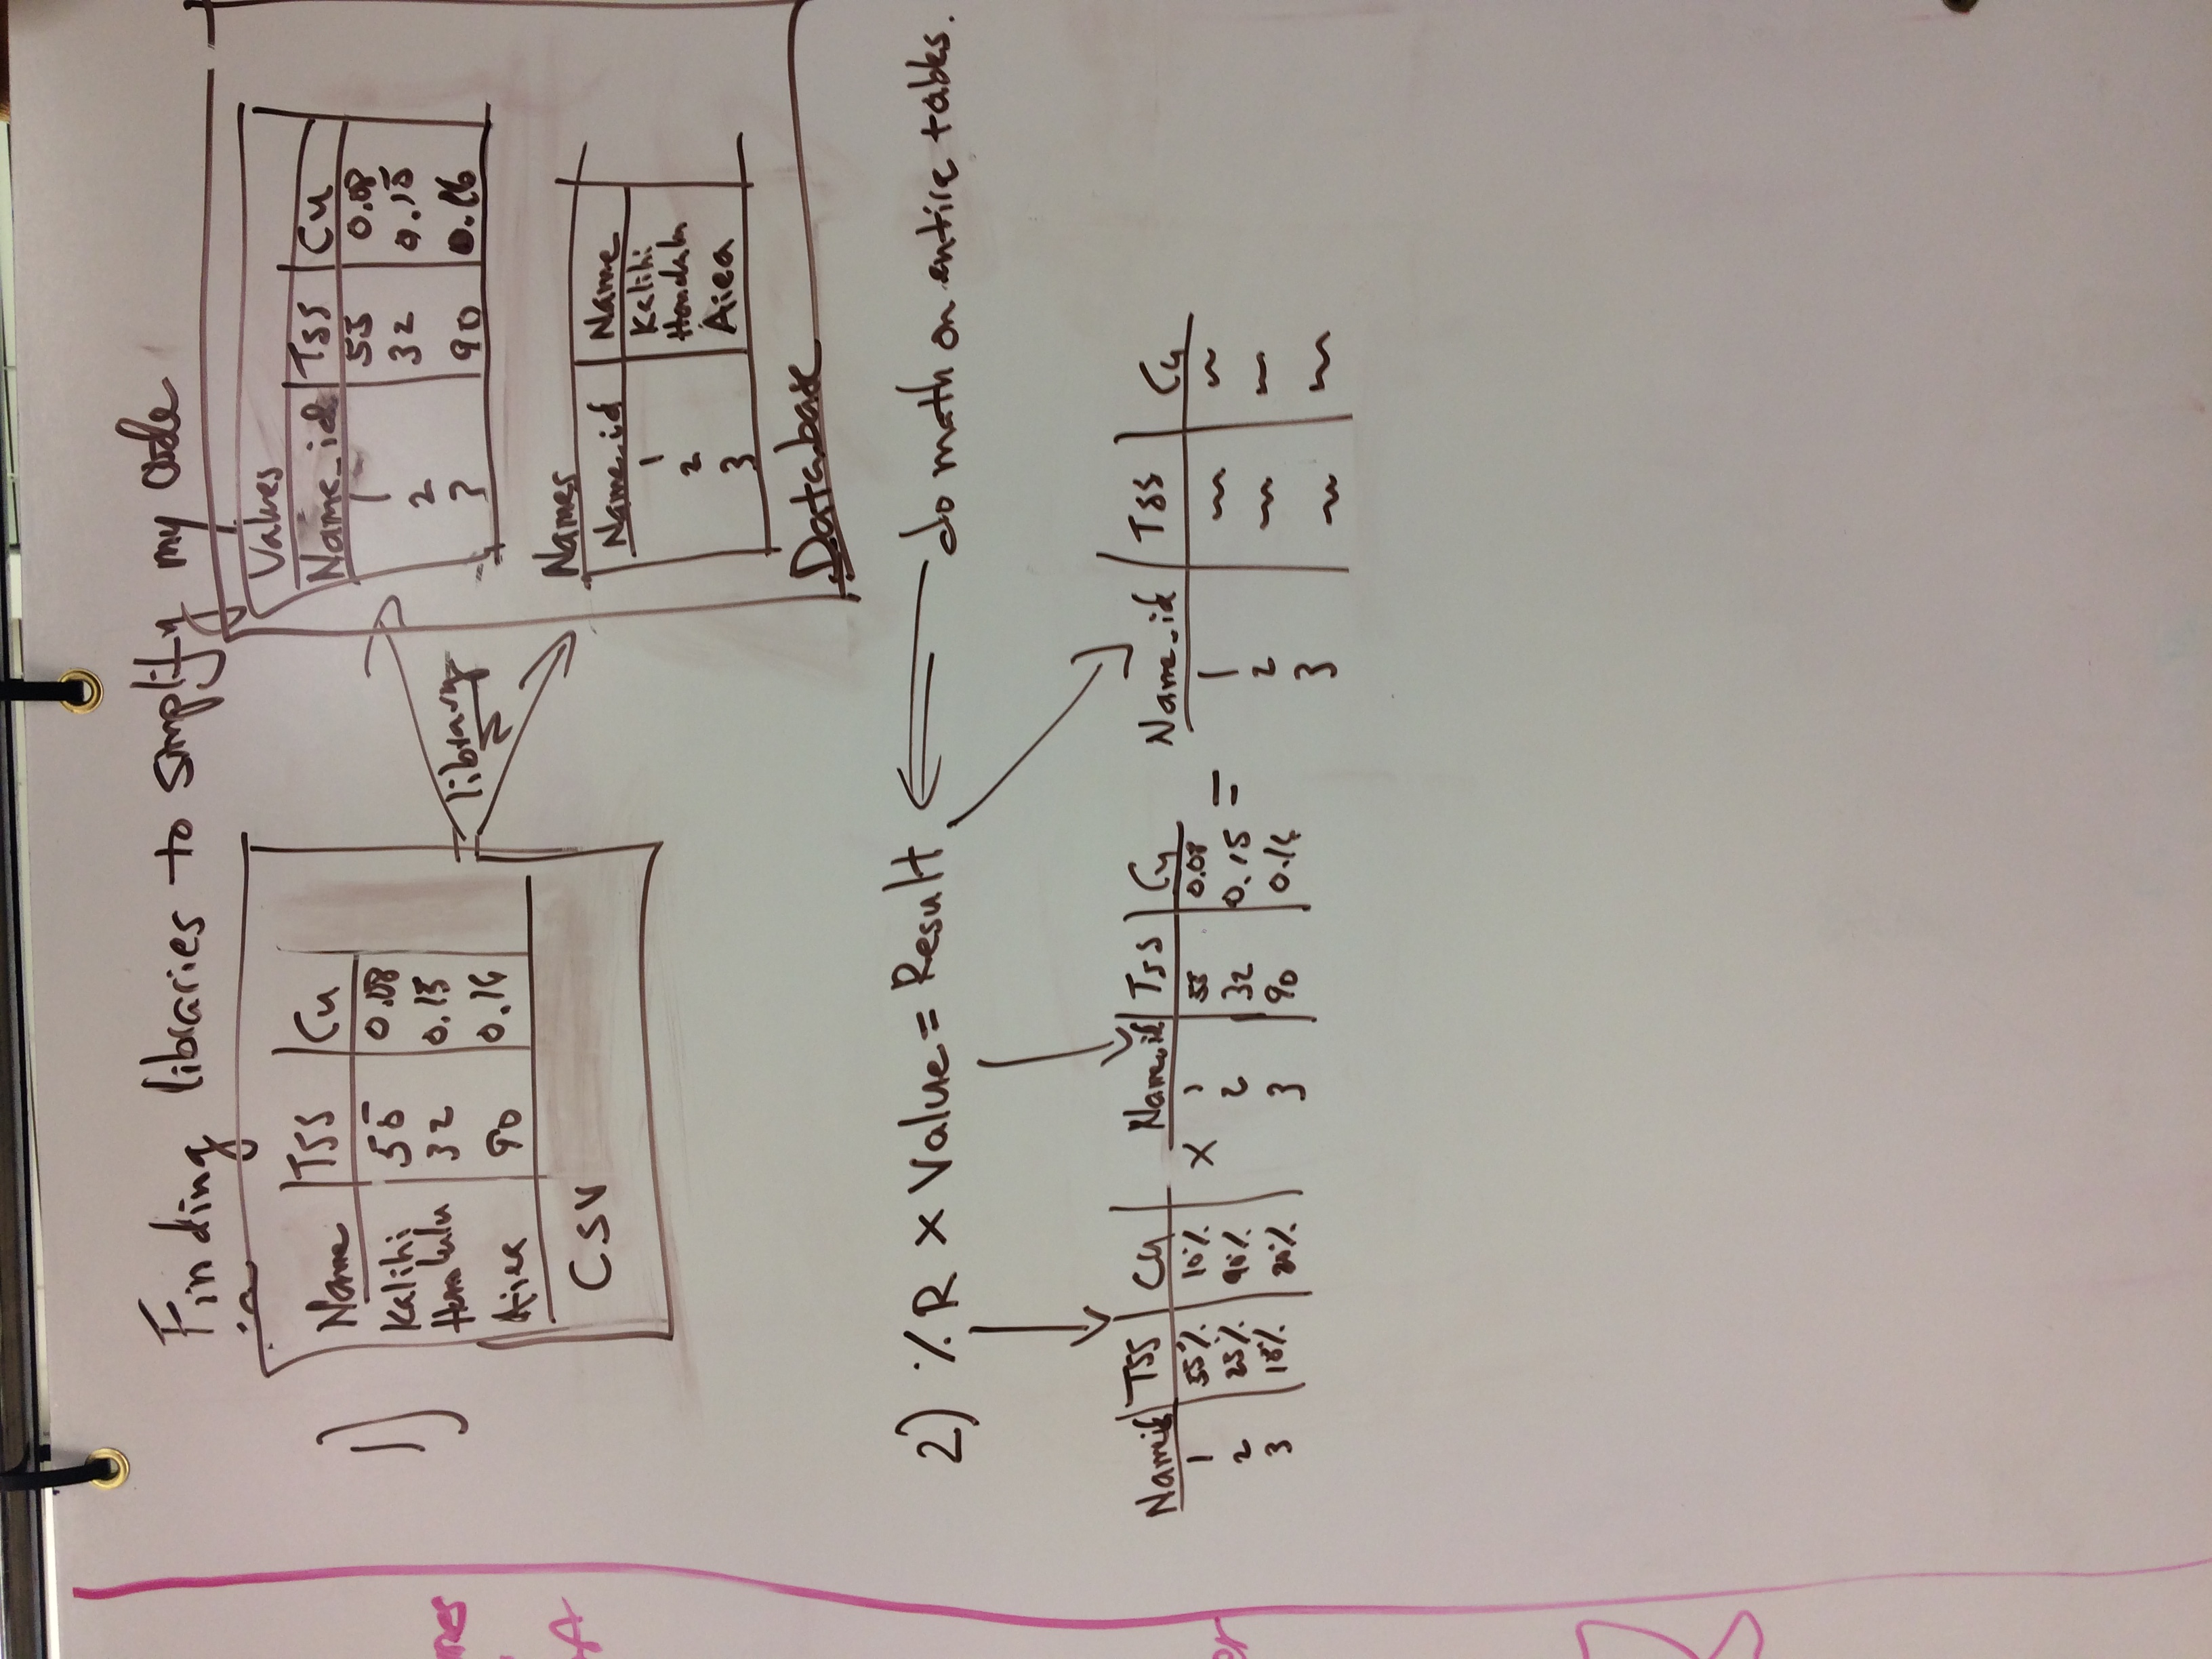 Finding libraries to simplify my code
1)
Name TSS Cu
Kalihi 55 0.08
Honolulu 32 0.15
Aiea 90 0.16
CSV
library
Values
Name_id TSS Cu
1 55 0.08
2 32 0.15
3 90 0.16
Names
Name_id Name
1 Kalihi
2 Honolulu
3 Aiea
Database
2) % R × Value = Result
do math on entire tables.
Name_id TSS Cu
1 55% 10%
2 25% 90%
3 10% 20%
×
Name_id TSS Cu
1 55 0.08
2 32 0.15
3 90 0.16
=
Name_id TSS Cu
1
2
3